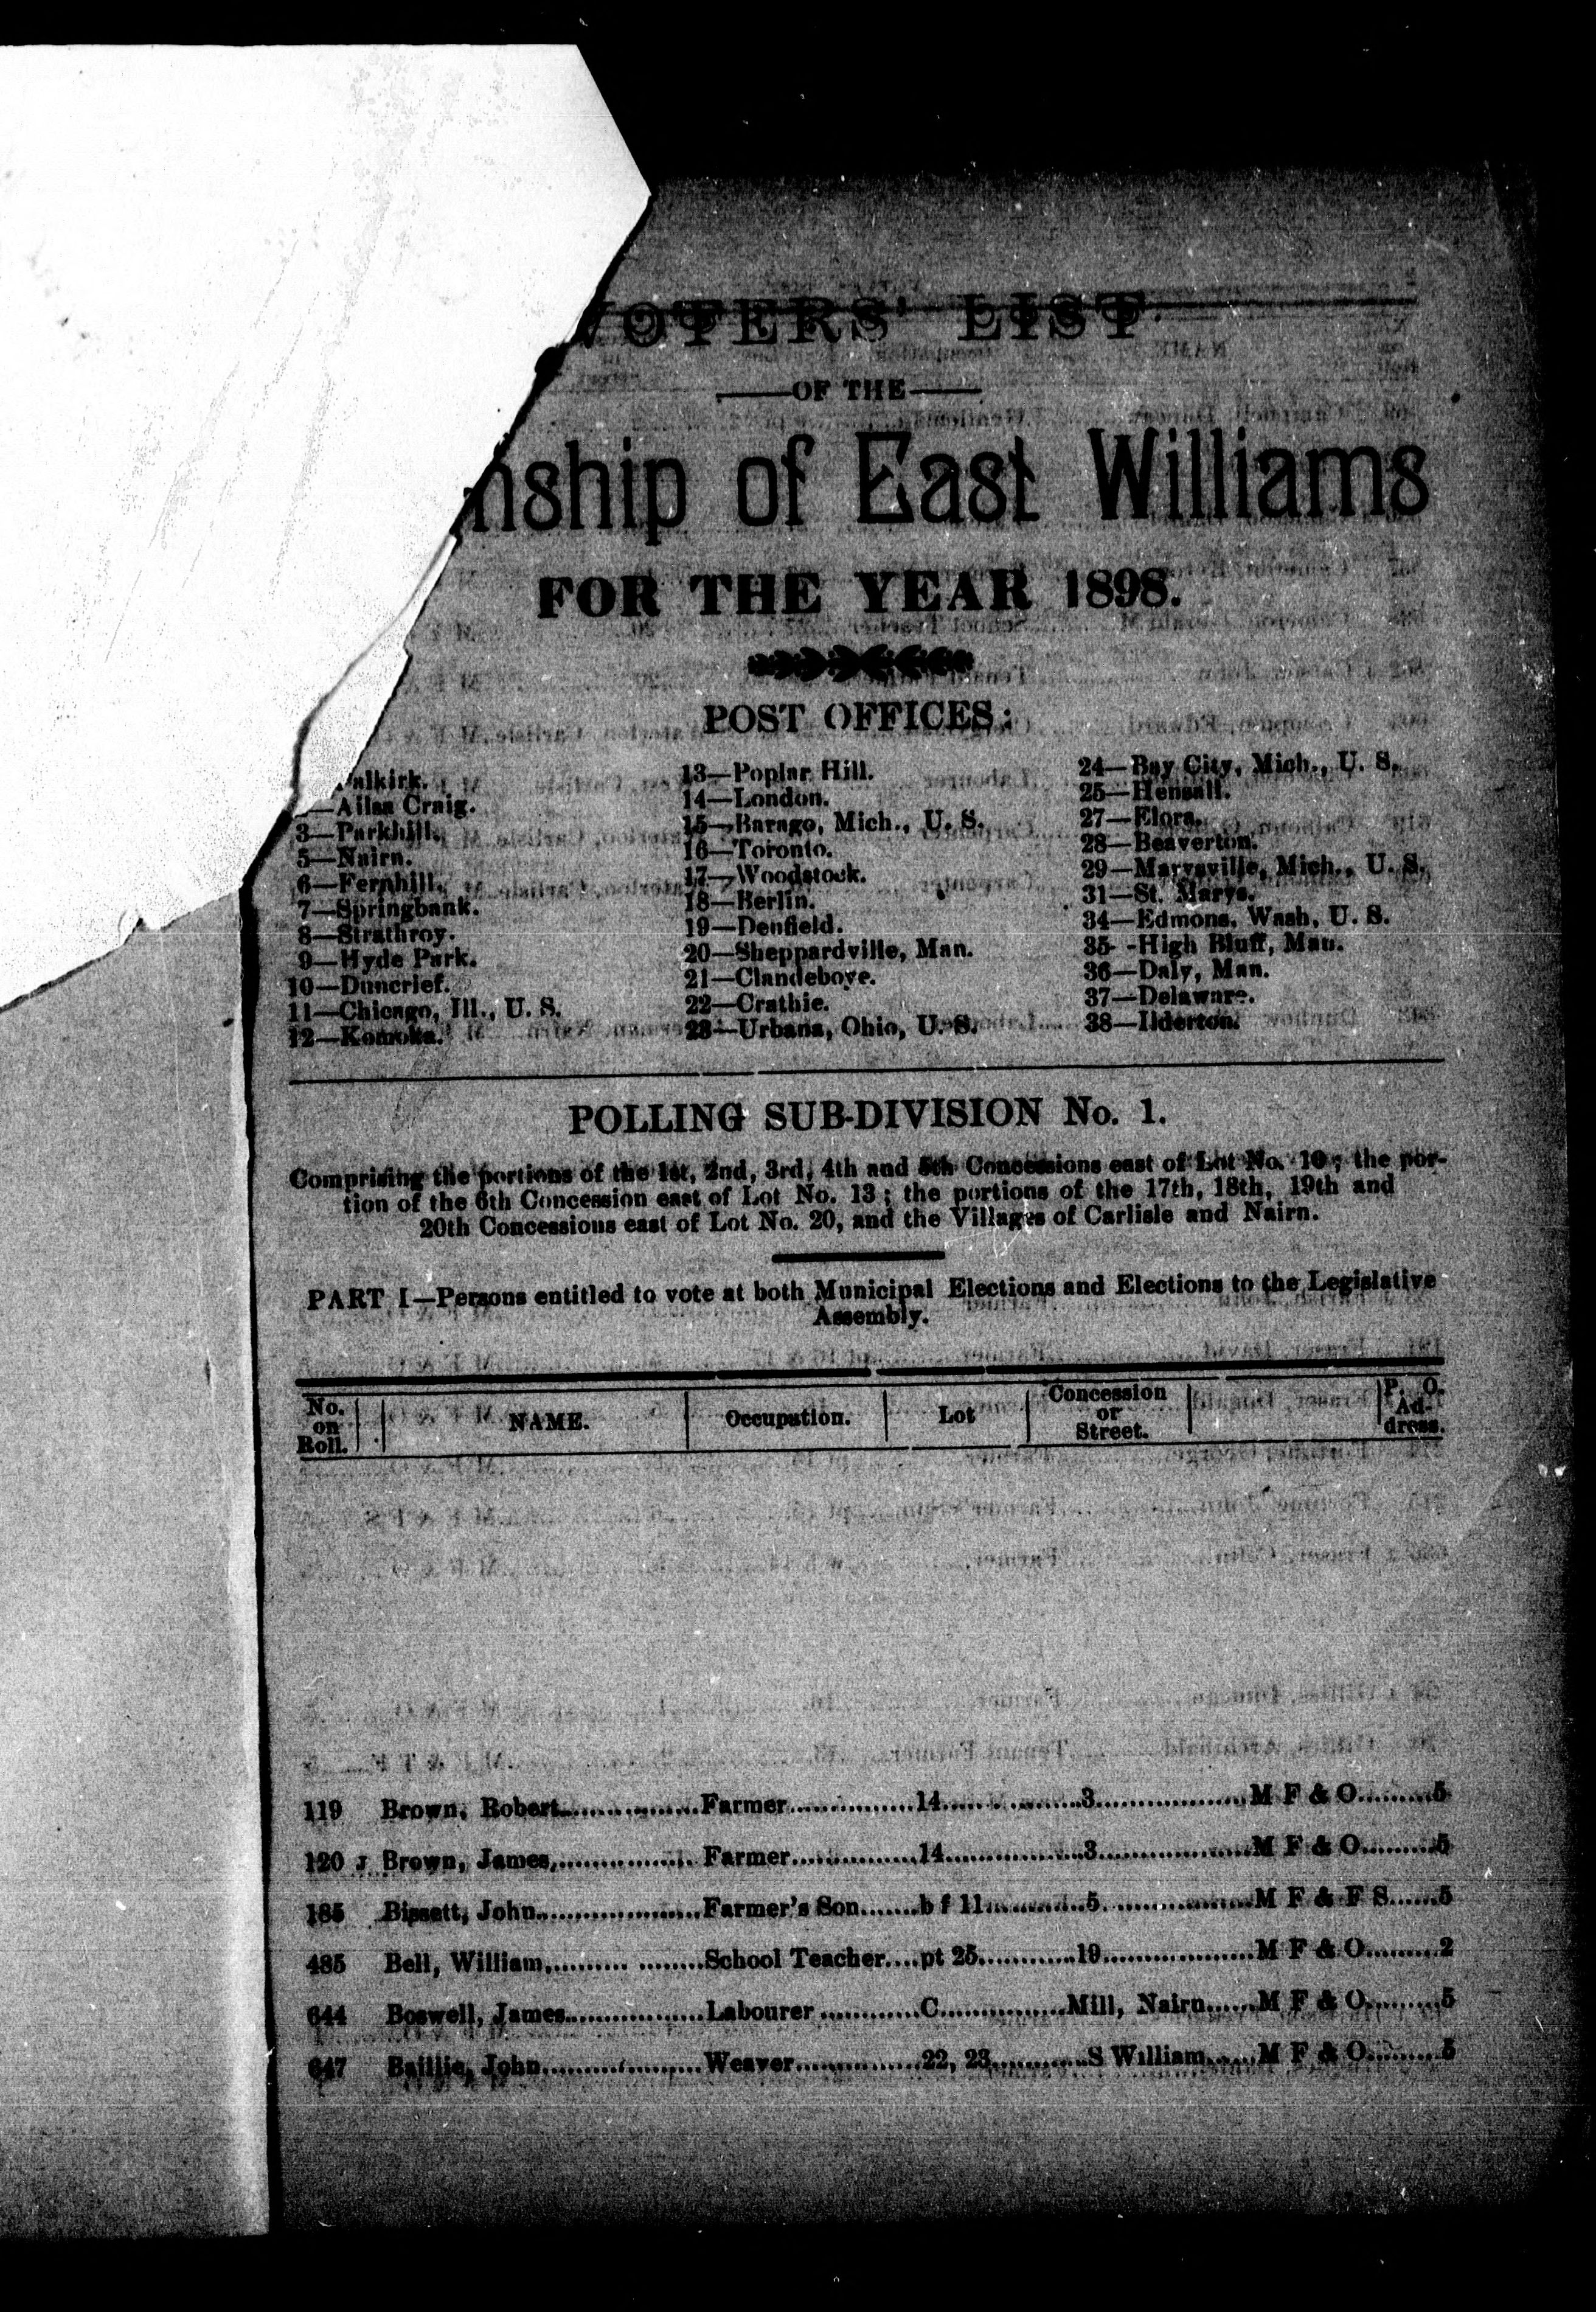 VOTERS' LIST
OF THE
nship of East Williams
FOR THE YEAR 1898.
POST OFFICES:
alkirk.
—Ailsa Craig.
3—Parkhill.
5—Nairn.
6—Fernhill.
7—Springbank.
8—Strathroy.
9—Hyde Park.
10—Duncrief.
11—Chicago, Ill., U. S.
12—Komoka.
13—Poplar Hill.
14—London.
15—Barago, Mich., U. S.
16—Toronto.
17—Woodstock.
18—Berlin.
19—Denfield.
20—Sheppardville, Man.
21—Clandeboye.
22—Crathie.
23—Urbana, Ohio, U. S.
24—Bay City, Mich., U. S.
25—Hensall.
27—Elora.
28—Beaverton.
29—Marysville, Mich., U. S.
31—St. Marys.
34—Edmons, Wash, U. S.
35--High Bluff, Man.
36—Daly, Man.
37—Delaware.
38—Ilderton.
POLLING SUB-DIVISION No. 1.
Comprising the portions of the 1st, 2nd, 3rd, 4th and 5th Concessions east of Lot No. 10; the por-
tion of the 6th Concession east of Lot No. 13; the portions of the 17th, 18th, 19th and
20th Concessions east of Lot No. 20, and the Villages of Carlisle and Nairn.
PART I—Persons entitled to vote at both Municipal Elections and Elections to the Legislative
Assembly.
No. on Roll. NAME. Occupation. Lot Concession or Street. P. O. Ad-dress.
119 Brown, Robert Farmer 14 3 M F & O 5
120 J Brown, James, Farmer 14 3 M F & O 5
185 Bissett, John Farmer's Son b f 11 5 M F & F S 5
485 Bell, William School Teacher pt 25 19 M F & O 2
644 Boswell, James Labourer C Mill, Nairn M F & O 5
647 Baillie, John Weaver 22, 23 S William M F & O 5